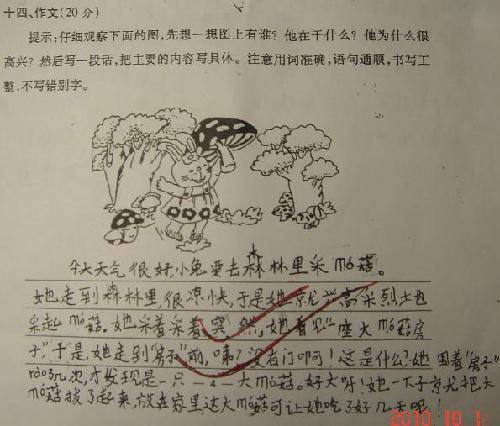 十四、作文(20分)
提示:仔细观察下面的图,先想一想图上有谁?他在干什么?他为什么很
高兴?然后写一段话,把主要的内容写具体。注意用词准确,语句通顺,书写工
整,不写错别字。
今天天气很好小兔要去大森林里采mó菇。
她走到森林里很凉快,于是她京尤兴高采烈士也
采起mó菇。她采着采着,突然,她看见一座大mó菇房
子"于是她走到"房子"前,咦?没有门叩可!这是什么?她围着"房子"
rào几次,才发现是一只一4一大mó菇。好大呀!她一下子京尤把大
mó菇拔了起来,放在家里这大mó菇可让她吃了好几天呢!
2010.10.1